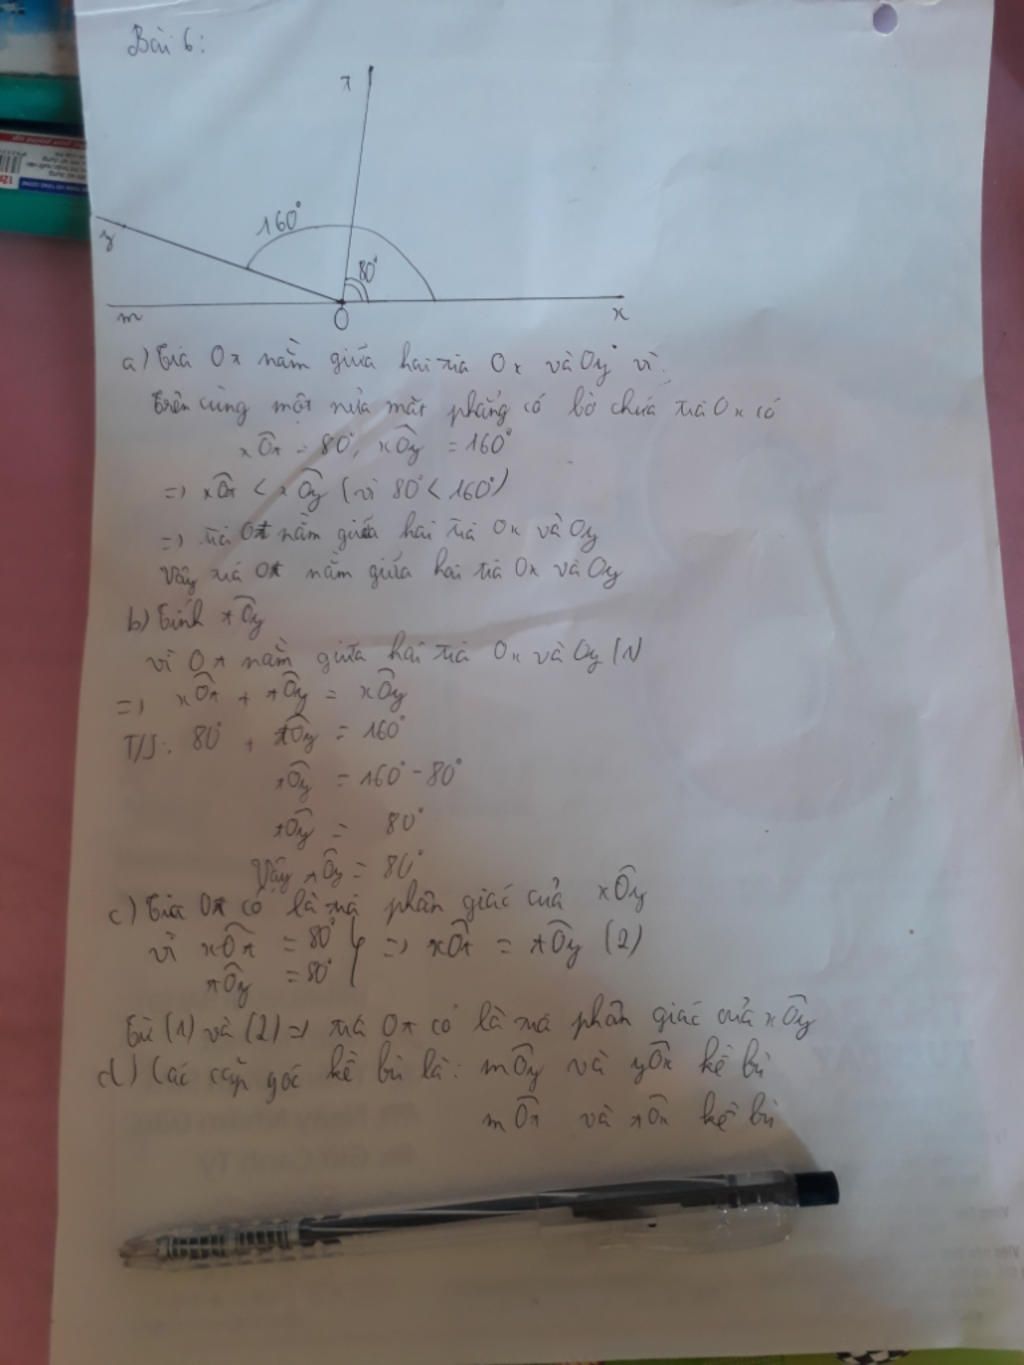 Bài 6:
π
160°
y
80°
m
O
x
a) Tia Oπ nằm giữa hai tia Ox và Oy vì:
Trên cùng một nửa mặt phẳng có bờ chứa tia Ox có
xÔπ = 80°, xÔy = 160°
=> xÔπ < xÔy (vì 80° < 160°)
=> tia Oπ nằm giữa hai tia Ox và Oy
Vậy tia Oπ nằm giữa hai tia Ox và Oy
b) Tính πÔy
vì Oπ nằm giữa hai tia Ox và Oy (1)
=> xÔπ + πÔy = xÔy
T/S: 80° + πÔy = 160°
πÔy = 160° - 80°
πÔy = 80°
Vậy πÔy = 80°
c) Tia Oπ có là tia phân giác của xÔy
vì xÔπ = 80° } => xÔπ = πÔy (2)
πÔy = 80°
Từ (1) và (2) => tia Oπ có là tia phân giác của xÔy
d) Các cặp góc kề bù là: mÔy và yÔx kề bù
mÔπ và πÔx kề bù